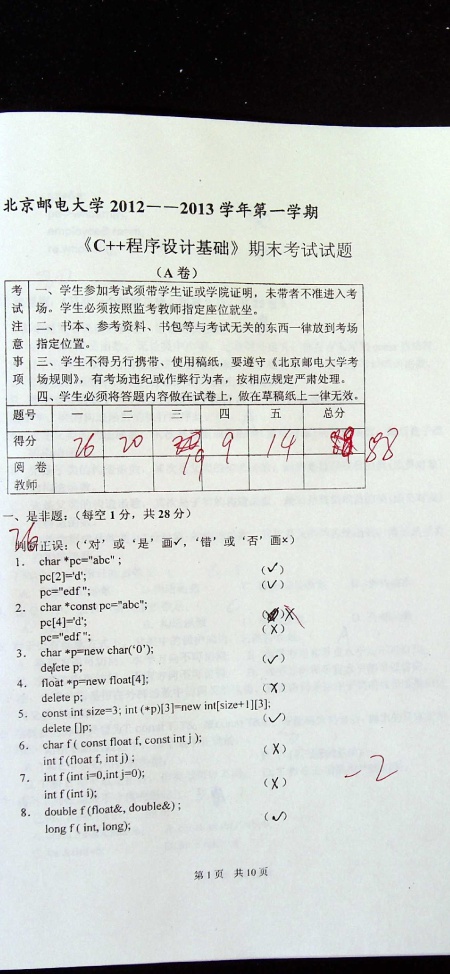 北京邮电大学 2012——2013 学年第一学期
《C++程序设计基础》期末考试试题
(A 卷)
考试注意事项
一、学生参加考试须带学生证或学院证明，未带者不准进入考
场。学生必须按照监考教师指定座位就坐。
二、书本、参考资料、书包等与考试无关的东西一律放到考场
指定位置。
三、学生不得另行携带、使用稿纸，要遵守《北京邮电大学考
场规则》，有考场违纪或作弊行为者，按相应规定严肃处理。
四、学生必须将答题内容做在试卷上，做在草稿纸上一律无效。
题号 一 二 三 四 五 总分
得分 26 20 19 9 14 88
阅 卷
教师
一、是非题:（每空 1 分，共 28 分）
26
判断正误:（‘对’或‘是’画✓，‘错’或‘否’画×）
1. char *pc="abc" ;
pc[2]='d'; (✓)
pc="edf "; (✓)
2. char *const pc="abc";
pc[4]='d'; X
pc="edf "; (X)
3. char *p=new char('0');
delete p; (✓)
4. float *p=new float[4];
delete p; (X)
5. const int size=3; int (*p)[3]=new int[size+1][3];
delete []p; (✓)
6. char f ( const float f, const int j );
int f (float f, int j) ; (X)
7. int f (int i=0,int j=0);
int f (int i); (X)
-2
8. double f (float&, double&) ;
long f ( int, long); (✓)
第 1 页 共 10 页